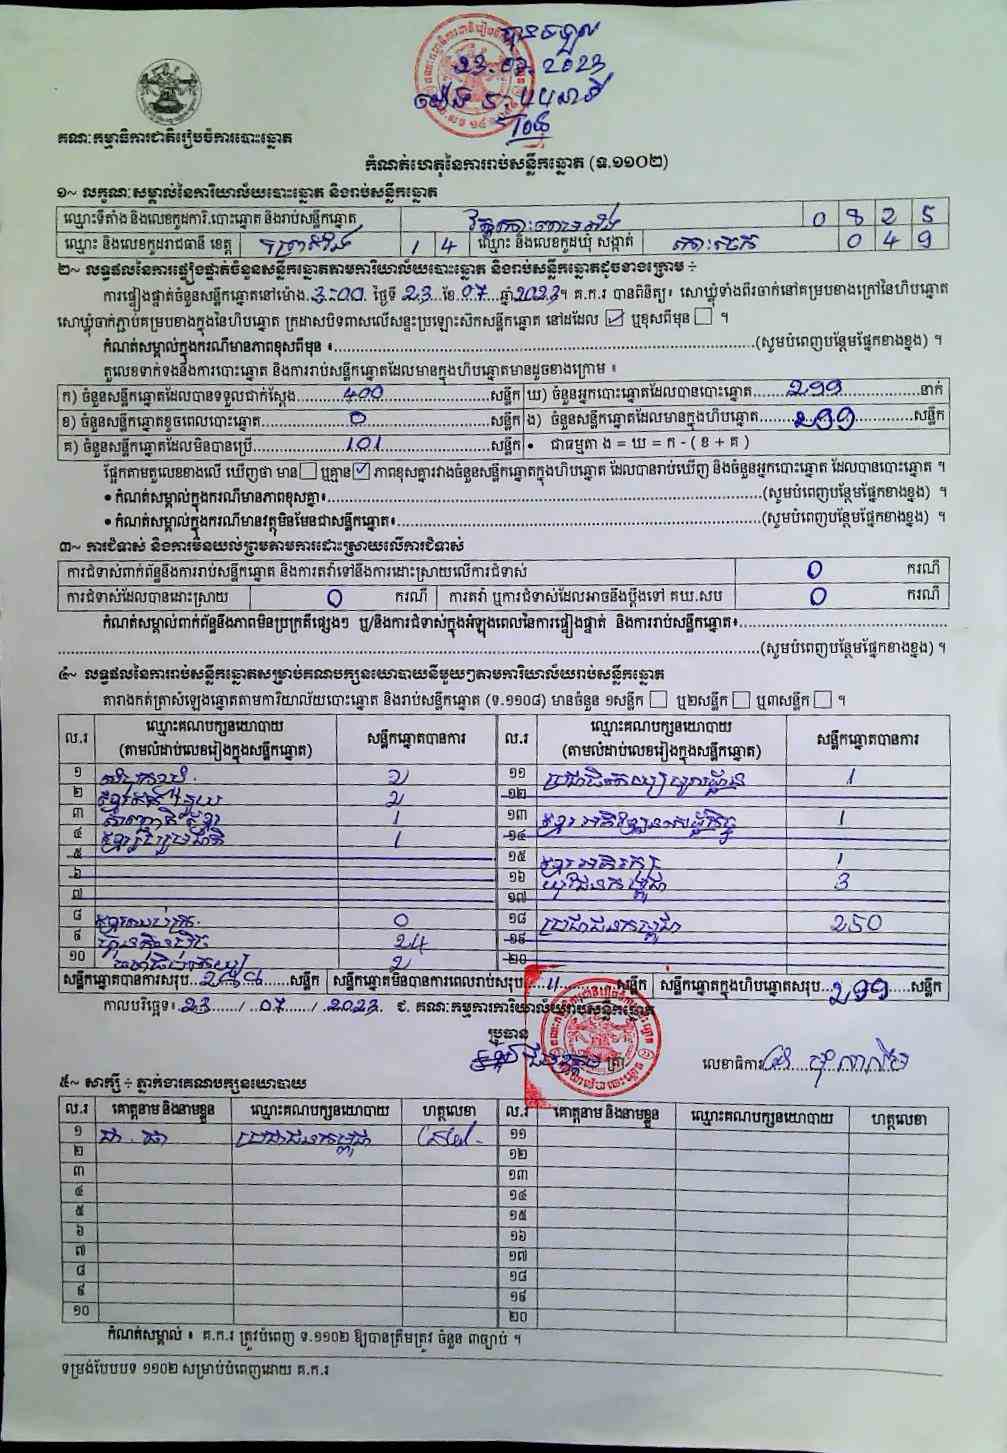 បានទទួល
23.07.2023
គណៈកម្មាធិការជាតិរៀបចំការបោះឆ្នោត
កំណត់ហេតុនៃការរាប់សន្លឹកឆ្នោត (ទ.១១០២)
១~ លក្ខណៈសម្គាល់នៃការិយាល័យបោះឆ្នោត និងរាប់សន្លឹកឆ្នោត
ឈ្មោះទីតាំង និងលេខកូដការិ.បោះឆ្នោត និងរាប់សន្លឹកឆ្នោត 0 8 2 5
ឈ្មោះ និងលេខកូដរាជធានី ខេត្ត ព្រៃវែង 1 4 ឈ្មោះ និងលេខកូដឃុំ សង្កាត់ 0 4 9
២~ លទ្ធផលនៃការផ្ទៀងផ្ទាត់ចំនួនសន្លឹកឆ្នោតតាមការិយាល័យបោះឆ្នោត និងរាប់សន្លឹកឆ្នោតដូចខាងក្រោម ÷
ការផ្ទៀងផ្ទាត់ចំនួនសន្លឹកឆ្នោតនៅម៉ោង 3:00 ថ្ងៃទី 23 ខែ 07 ឆ្នាំ 2023។ គ.ក.រ បានពិនិត្យ៖ សោឃ្លុំទាំងពីរចាក់នៅគម្របខាងក្រៅនៃហិបឆ្នោត
សោឃ្លុំចាក់ភ្ជាប់គម្របខាងក្នុងនៃហិបឆ្នោត ក្រដាសបិទពាសលើសន្ទះប្រឡោះសិកសន្លឹកឆ្នោត នៅដដែល ☑ ឬខុសពីមុន ☐ ។
កំណត់សម្គាល់ក្នុងករណីមានភាពខុសពីមុន ៖ (សូមបំពេញបន្ថែមផ្នែកខាងខ្នង) ។
តួលេខទាក់ទងនឹងការបោះឆ្នោត និងការរាប់សន្លឹកឆ្នោតដែលមានក្នុងហិបឆ្នោតមានដូចខាងក្រោម ៖
ក) ចំនួនសន្លឹកឆ្នោតដែលបានទទួលជាក់ស្តែង 400 សន្លឹក ឃ) ចំនួនអ្នកបោះឆ្នោតដែលបានបោះឆ្នោត 299 នាក់
ខ) ចំនួនសន្លឹកឆ្នោតខូចពេលបោះឆ្នោត 0 សន្លឹក ង) ចំនួនសន្លឹកឆ្នោតដែលមានក្នុងហិបឆ្នោត 299 សន្លឹក
គ) ចំនួនសន្លឹកឆ្នោតដែលមិនបានប្រើ 101 សន្លឹក • ជាធម្មតា ង = ឃ = ក - ( ខ + គ )
ផ្អែកតាមតួលេខខាងលើ ឃើញថា មាន ☐ ឬគ្មាន ☑ ភាពខុសគ្នារវាងចំនួនសន្លឹកឆ្នោតក្នុងហិបឆ្នោត ដែលបានរាប់ឃើញ និងចំនួនអ្នកបោះឆ្នោត ដែលបានបោះឆ្នោត ។
• កំណត់សម្គាល់ក្នុងករណីមានភាពខុសគ្នា៖ (សូមបំពេញបន្ថែមផ្នែកខាងខ្នង) ។
• កំណត់សម្គាល់ក្នុងករណីមានវត្ថុមិនមែនជាសន្លឹកឆ្នោត៖ (សូមបំពេញបន្ថែមផ្នែកខាងខ្នង) ។
៣~ ការជំទាស់ និងការមិនយល់ព្រមតាមការដោះស្រាយលើការជំទាស់
ការជំទាស់ពាក់ព័ន្ធនឹងការរាប់សន្លឹកឆ្នោត និងការតវ៉ាទៅនឹងការដោះស្រាយលើការជំទាស់ 0 ករណី
ការជំទាស់ដែលបានដោះស្រាយ 0 ករណី ការតវ៉ា ឬការជំទាស់ដែលអាចនឹងប្តឹងទៅ គឃ.សប 0 ករណី
កំណត់សម្គាល់ពាក់ព័ន្ធនឹងភាពមិនប្រក្រតីផ្សេងៗ ឬ/និងការជំទាស់ក្នុងអំឡុងពេលនៃការផ្ទៀងផ្ទាត់ និងការរាប់សន្លឹកឆ្នោត៖
(សូមបំពេញបន្ថែមផ្នែកខាងខ្នង) ។
៤~ លទ្ធផលនៃការរាប់សន្លឹកឆ្នោតសម្រាប់គណបក្សនយោបាយនីមួយៗតាមការិយាល័យរាប់សន្លឹកឆ្នោត
តារាងកត់ត្រាសំឡេងឆ្នោតតាមការិយាល័យបោះឆ្នោត និងរាប់សន្លឹកឆ្នោត (ទ.១១០៨) មានចំនួន ១សន្លឹក ☐ ឬ២សន្លឹក ☐ ឬ៣សន្លឹក ☐ ។
ល.រ ឈ្មោះគណបក្សនយោបាយ (តាមលំដាប់លេខរៀងក្នុងសន្លឹកឆ្នោត) សន្លឹកឆ្នោតបានការ ល.រ ឈ្មោះគណបក្សនយោបាយ (តាមលំដាប់លេខរៀងក្នុងសន្លឹកឆ្នោត) សន្លឹកឆ្នោតបានការ
១ 2 ១១ 1
២ 2 ១២
៣ 1 ១៣ 1
៤ ខ្មែររួបរួមជាតិ 1 ១៤
៥ ១៥ 1
៦ ១៦ 3
៧ ១៧
៨ 0 ១៨ ប្រជាជនកម្ពុជា 250
៩ ហ៊្វុនស៊ិនប៉ិច 24 ១៩
១០ 2 ២០
សន្លឹកឆ្នោតបានការសរុប 288 សន្លឹក សន្លឹកឆ្នោតមិនបានការពេលរាប់សរុប 11 សន្លឹក សន្លឹកឆ្នោតក្នុងហិបឆ្នោតសរុប 299 សន្លឹក
កាលបរិច្ឆេទ៖ 23 / 07 / 2023 ជ. គណៈកម្មការការិយាល័យរាប់សន្លឹកឆ្នោត
ប្រធាន
លេខាធិការ
៥~ សាក្សី ÷ ភ្នាក់ងារគណបក្សនយោបាយ
ល.រ គោត្តនាម និងនាមខ្លួន ឈ្មោះគណបក្សនយោបាយ ហត្ថលេខា ល.រ គោត្តនាម និងនាមខ្លួន ឈ្មោះគណបក្សនយោបាយ ហត្ថលេខា
១ ប្រជាជនកម្ពុជា ១១
២ ១២
៣ ១៣
៤ ១៤
៥ ១៥
៦ ១៦
៧ ១៧
៨ ១៨
៩ ១៩
១០ ២០
កំណត់សម្គាល់ ៖ គ.ក.រ ត្រូវបំពេញ ទ.១១០២ ឱ្យបានត្រឹមត្រូវ ចំនួន ៣ច្បាប់ ។
ទម្រង់បែបបទ ១១០២ សម្រាប់បំពេញដោយ គ.ក.រ